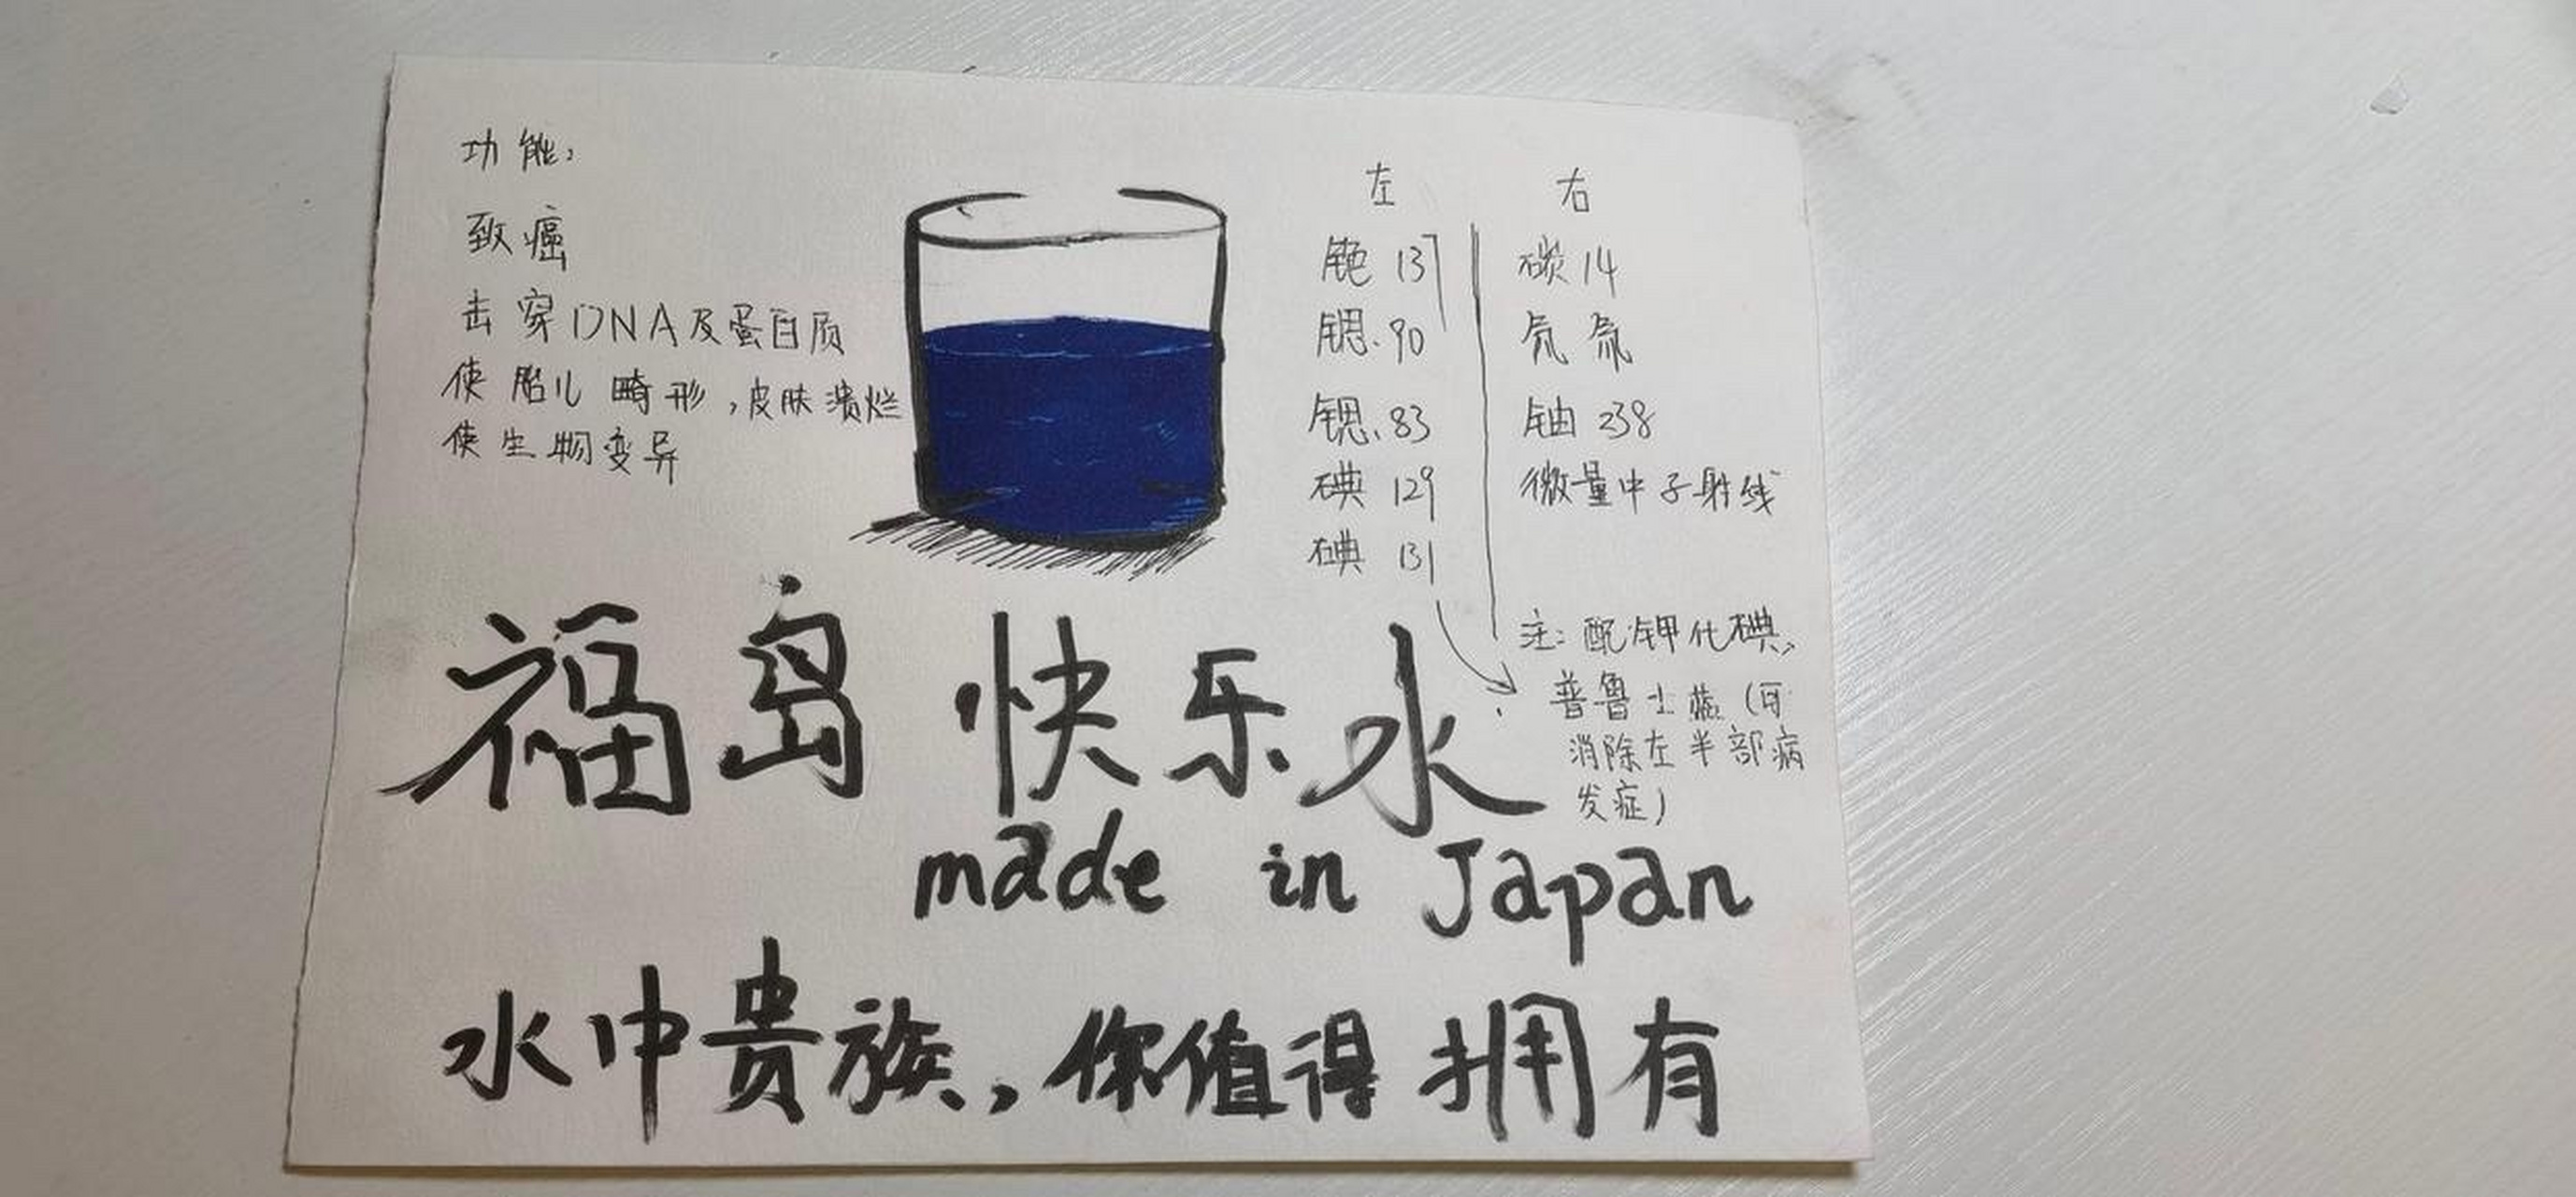 功能：
致癌
击穿DNA及蛋白质
使胎儿畸形，皮肤溃烂
使生物变异
左
铯 137
锶.90
锶.83
碘 129
碘 131
右
碳14
氘 氚
铀 238
微量中子射线
注：配钾化碘、
普鲁士蓝（可
消除左半部病
发症）
福岛快乐水
made in Japan
水中贵族，你值得拥有